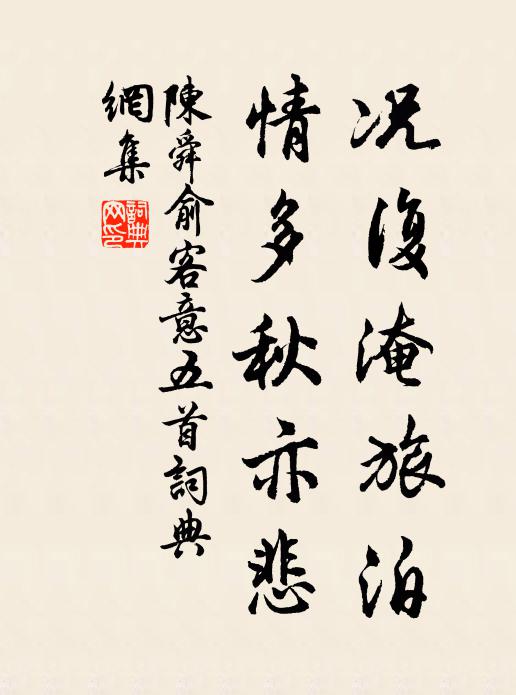 况復淹旅泊
情多秋亦悲
陳舜俞客意五首詞典
網集
詞典
网印